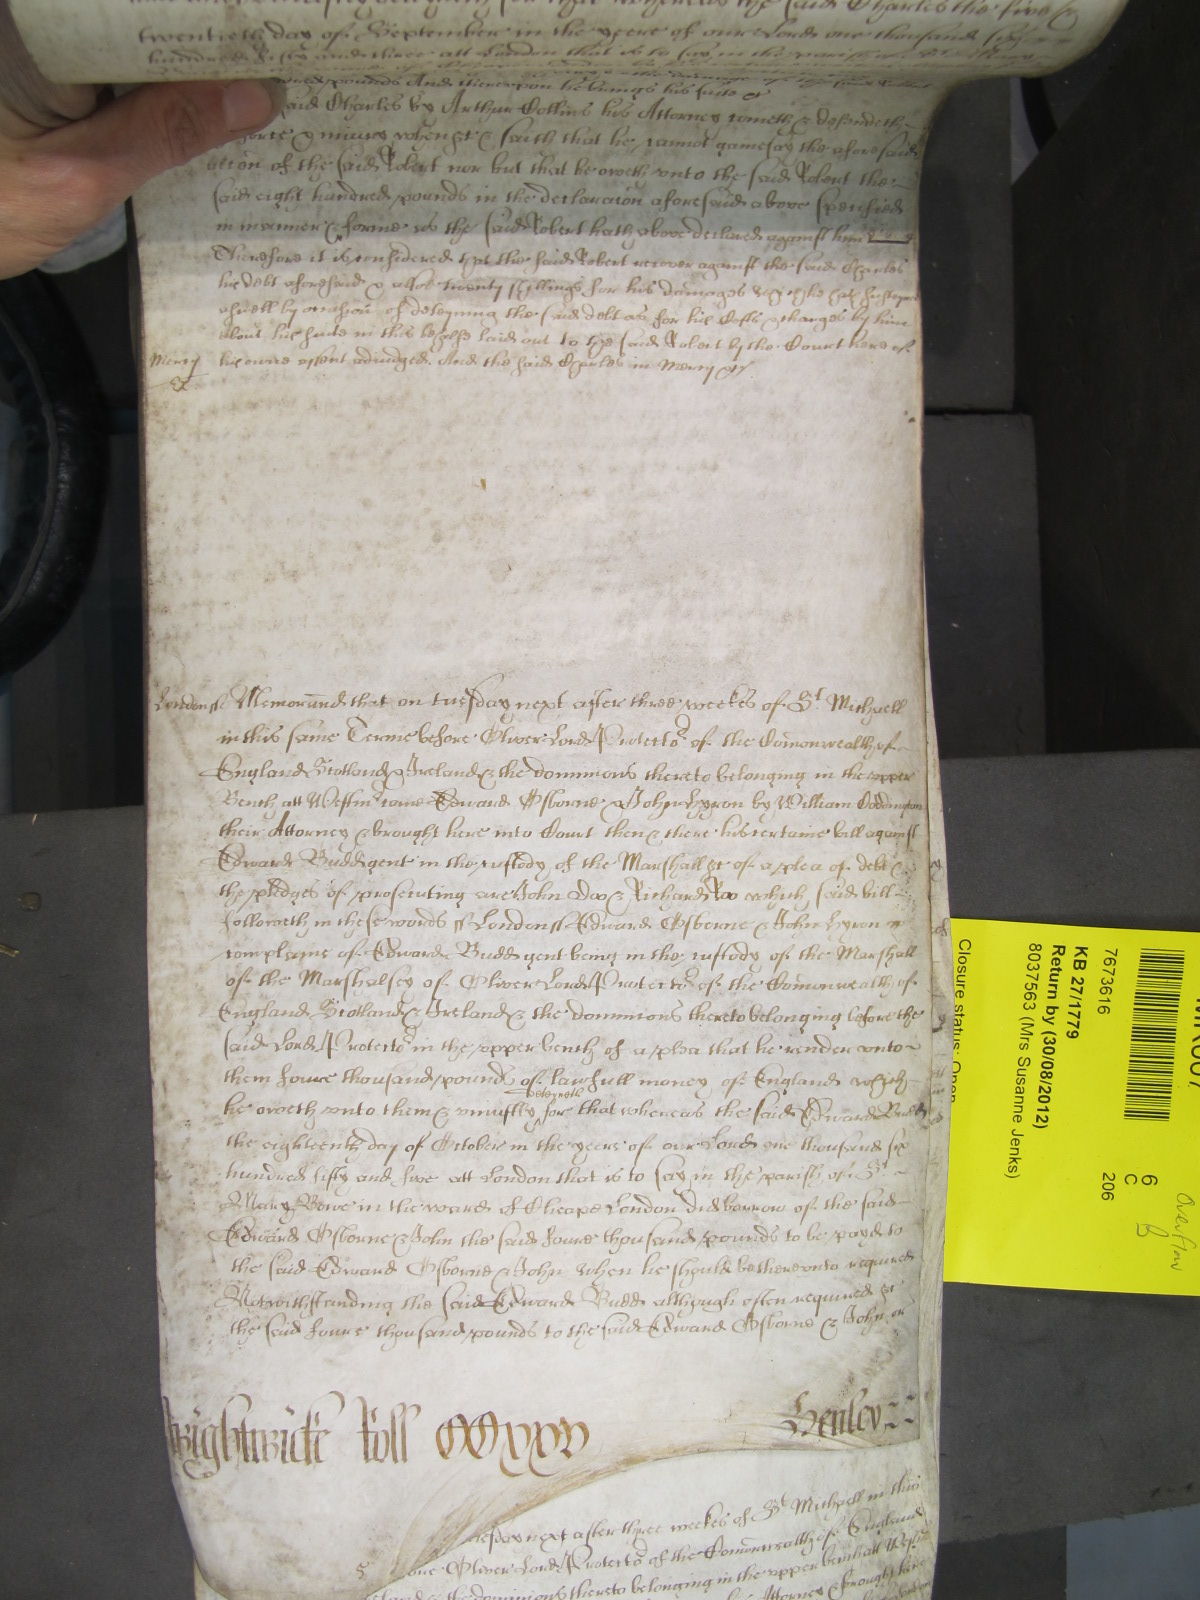 twentieth day of September in the yeere of our Lord one thousand six
hundred fifty and three att London that is to say in the parish
pounds And thereupon he brings his suite &c
said Charles by Arthur Collins his Attorney cometh & defendeth
force & iniury when &c & saith that he cannot gainesay the aforesaid
accon of the said Robert nor but that he oweth unto the said Robert the
said eight hundred pounds in the declaracion aforesaid above specified
in manner & forme as the said Robert hath above declared against him
Therefore it is considered that the said Robert recover against the said Charles
his debt aforesaid & also twenty shillings for his damages which he hath susteyned
aswell by occasion of deteyning the said debt as for his Costs & charges by him
about his suite in this behalfe laid out to the said Robert by the Court here of
Mercy his owne assent adiudged. And the said Charles in Mercy &c
&c
London ss Memorand that on tuesday next after three weekes of St Michaell
in this same Terme before Oliver Lord Protector of the Comonwealth of
England Scotland & Ireland & the dominions thereto belonging in the upper
Bench att Westmr came Edward Osborne & John Hyron by William Coddington
their Attorney & brought here into Court then & there his certaine bill against
Edward Budd gent in the custody of the Marshall &c of a plea of debt &
the pledges of prosecuting are John Doo & Richard Roo which said bill
followeth in these words ss London ss Edward Osborne & John Hyron
complaine of Edward Budd gent being in the custody of the Marshall
of the Marshalsey of Oliver Lord Protector of the Comonwealth of
England Scotland & Ireland & the dominions thereto belonging before the
said Lord Protector in the upper bench of a plea that he render unto
them foure thousand pounds of lawfull money of England which
he oweth unto them & uniustly deteyneth for that whereas the said Edward Budd
the eighteenth day of October in the yeere of our Lord one thousand six
hundred fifty and five att London that is to say in the parish of St
Mary Bowe in the ward of Cheape London did borrow of the said
Edward Osborne & John the said foure thousand pounds to be payd to
the said Edward Osborne & John when he should be thereunto required
Notwithstanding the said Edward Budd although often required &c
the said foure thousand pounds to the said Edward Osborne & John or
Wightwicke Roll CCxxxv Henley
next after three weekes of St Michaell in this
Oliver Lord Protector of the Comonwealth of England
& the dominions thereto belonging in the upper bench att Westmr
Attorney & brought here
7673616
KB 27/1779
Return by (30/08/2012)
8037563 (Mrs Susanne Jenks)
Closure status: Open
6
C
206